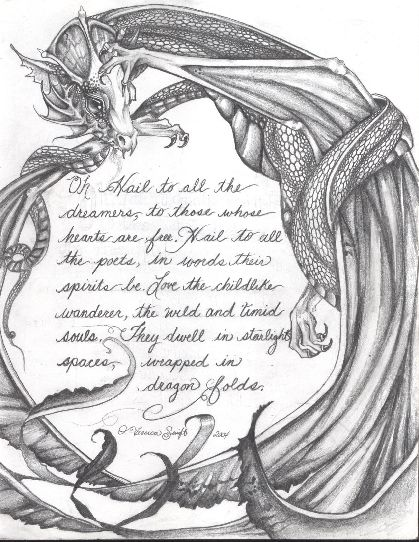 Oh Hail to all the
dreamers, to those whose
hearts are free. Hail to all
the poets, in words their
spirits be Love the childlike
wanderer, the wild and timid
souls. They dwell in starlight
spaces, wrapped in
dragon folds.
Swift 2004